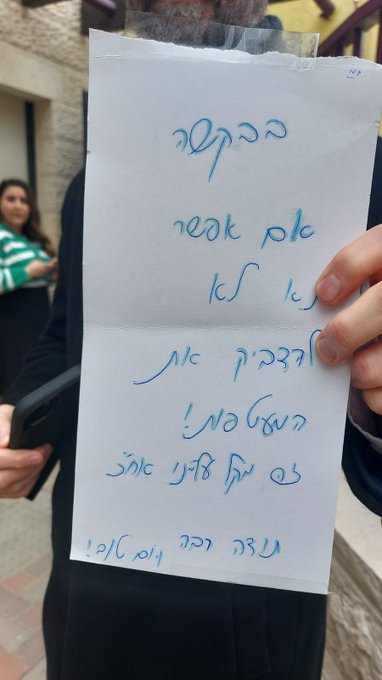 בס"ד
בבקשה
אם אפשר
נא לא
להדביק את
המעטפות!
זה מקל עלינו אח"כ
תודה רבה ויום טוב!